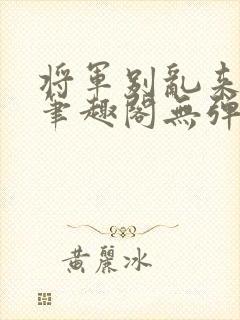 将軍别亂来
筆趣閣無彈
黃麗冰